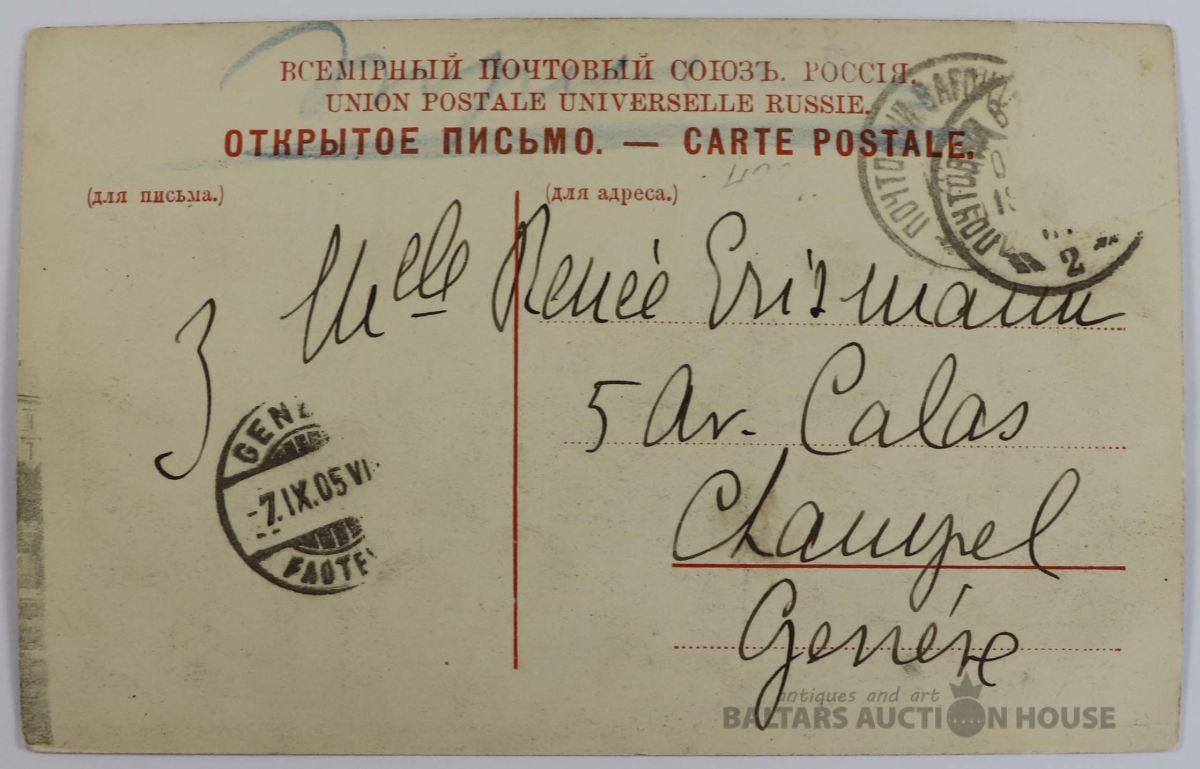 ВСЕМІРНЫЙ ПОЧТОВЫЙ СОЮЗЪ. РОССІЯ.
UNION POSTALE UNIVERSELLE RUSSIE.
ОТКРЫТОЕ ПИСЬМО. — CARTE POSTALE.
(для письма.)
(для адреса.)
Mlle Renée Erismann
5 Av. Calas
Champel
Genève
3
GENÈ
-7.IX.05 VI
FACTE
2
antiques and art
BALTARS AUCTION HOUSE